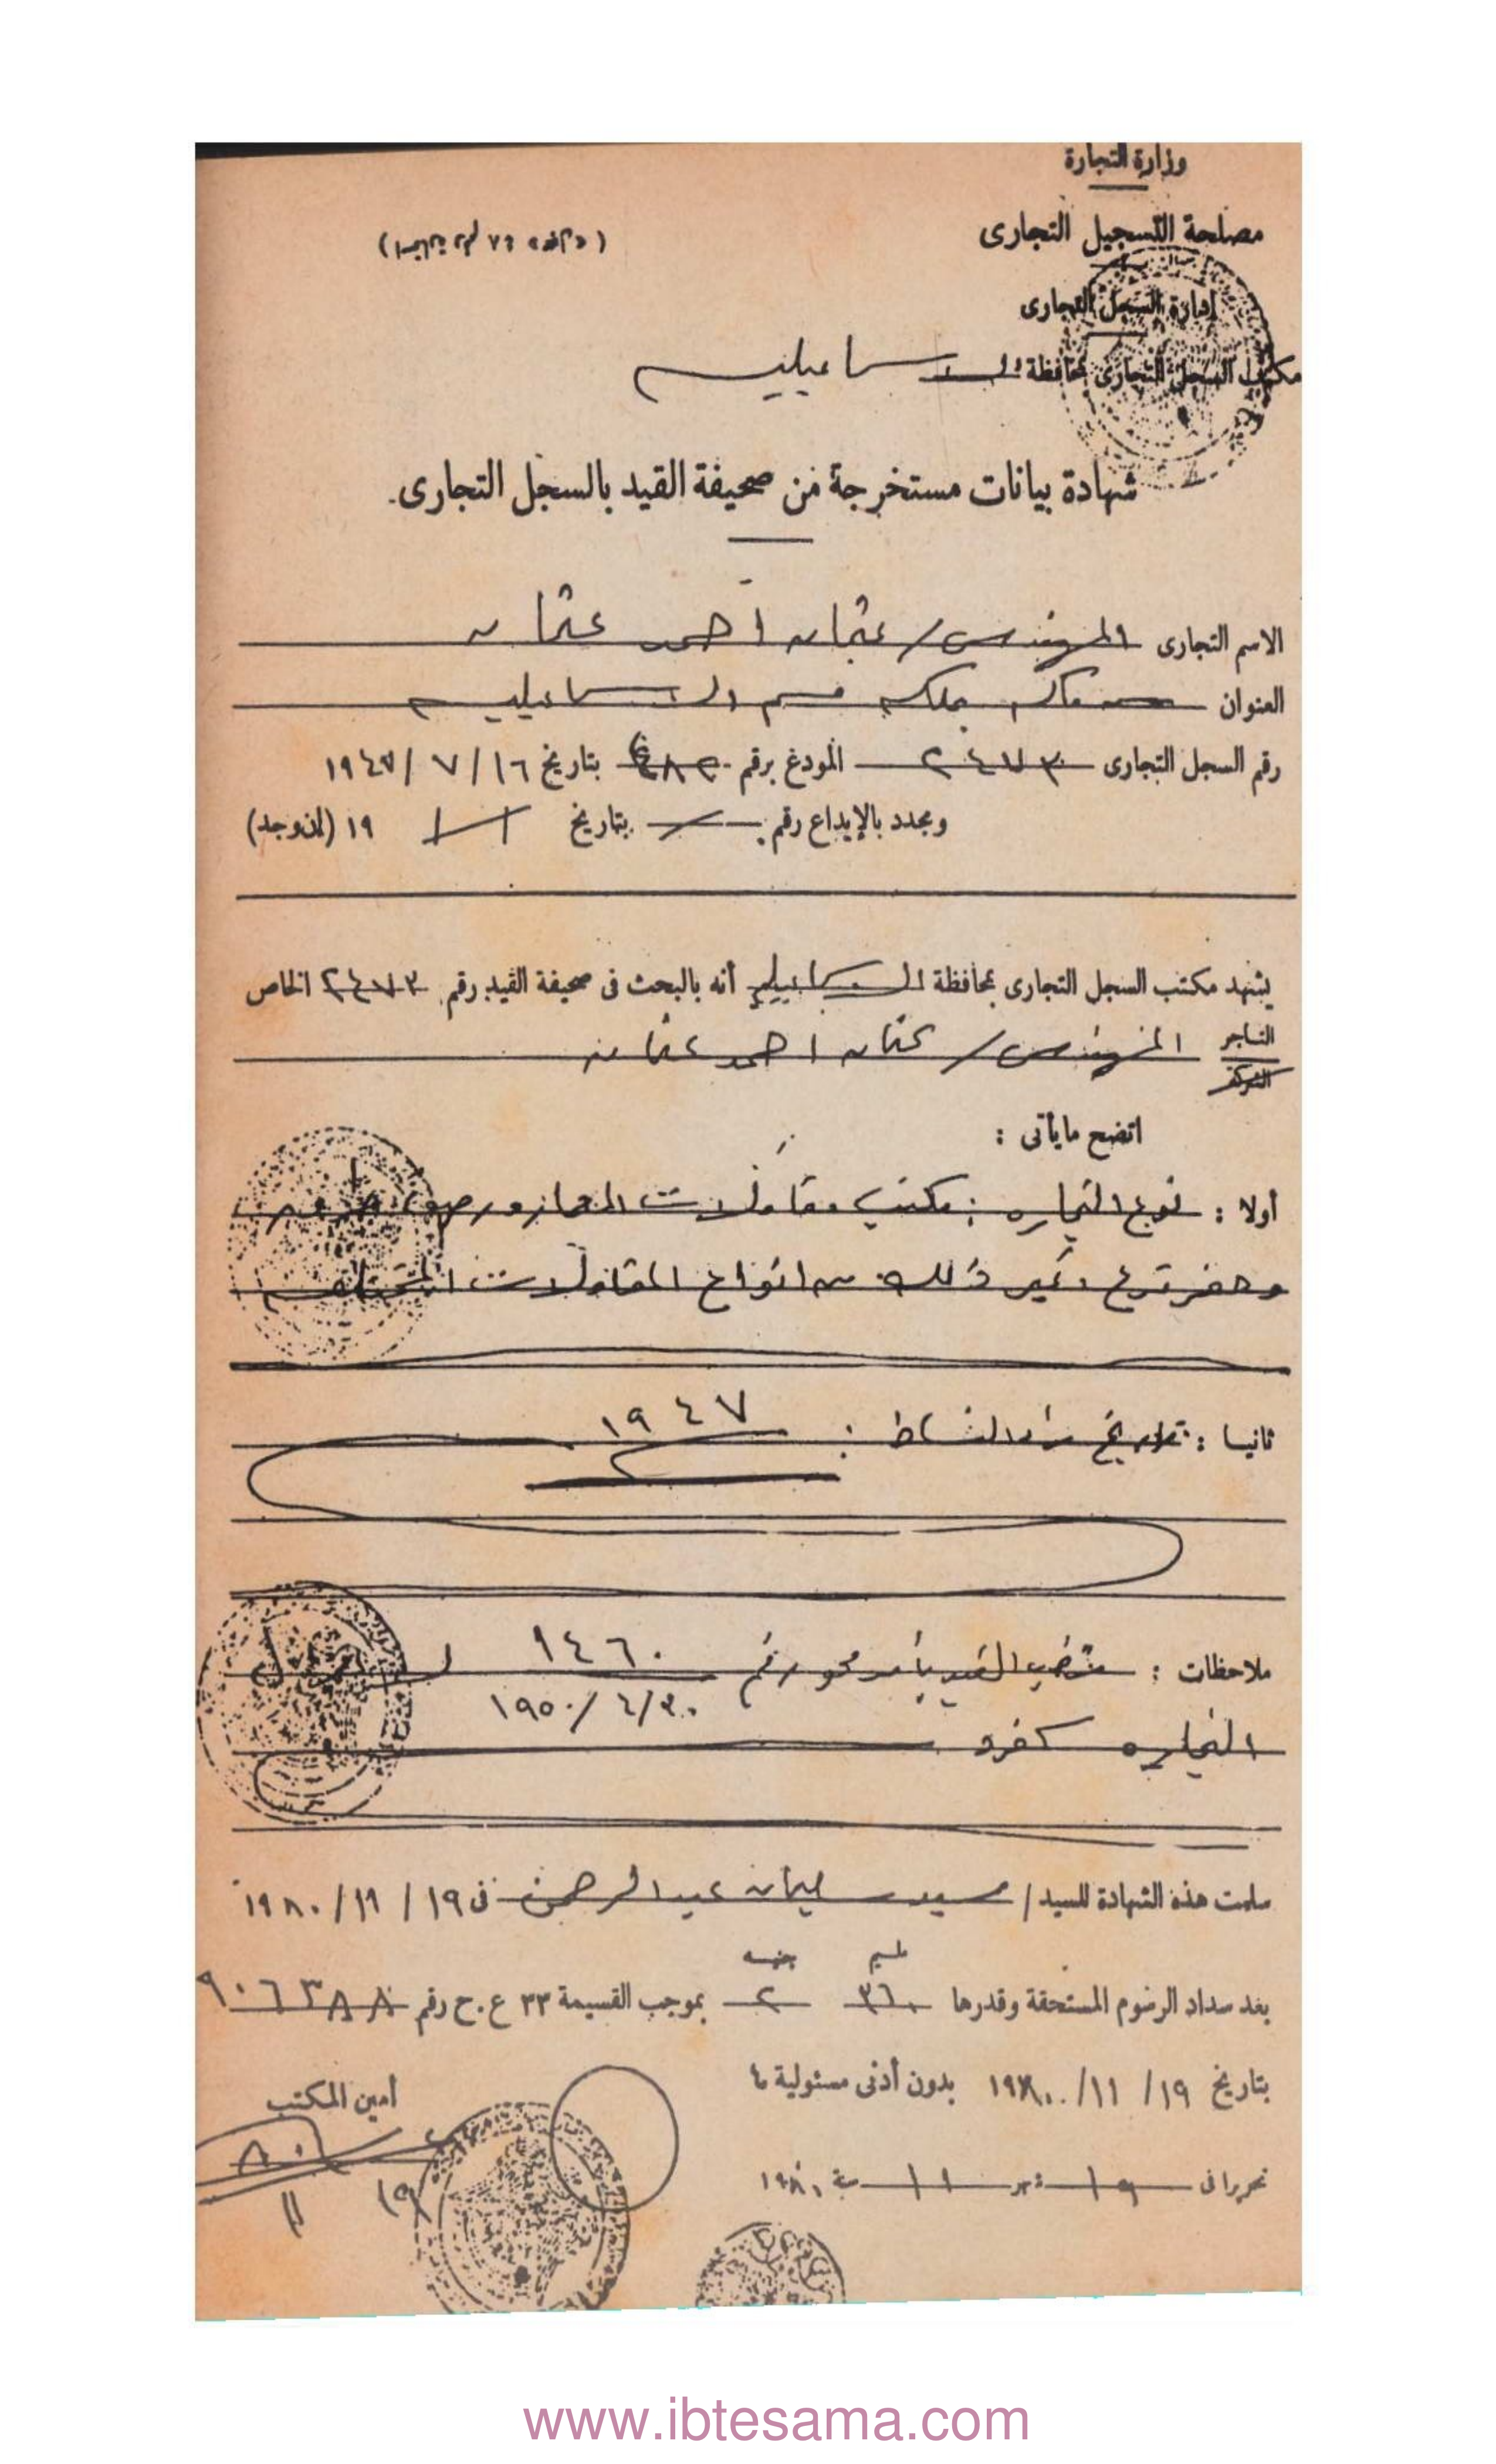 وزارة التجارة
مصلحة التسجيل التجارى
إدارة السجل التجارى
مكتب السجل التجارى بمحافظة الاسماعيلية
شهادة بيانات مستخرجة من صحيفة القيد بالسجل التجارى.
الاسم التجارى المهندس / عثمان احمد عثمان
العنوان ملكه قسم الاسماعيلية
رقم السجل التجارى ٢٤٧٣ المودع برقم بتاريخ ١٦ / ٧ / ١٩٤٧
ومجدد بالإيداع رقم بتاريخ / / ١٩ (إن وجد)
يشهد مكتب السجل التجارى بمحافظة الاسماعيلية أنه بالبحث فى صحيفة القيد رقم ٢٤٧٣ الخاص
التاجر المهندس / عثمان احمد عثمان
الشركة
اتضح مايأتى :
أولا : نوع التجاره : مكتب مقاولات
وحفر ترع وغير ذلك من انواع المقاولات المختلفه
ثانيا : تاريخ بدأ النشاط : ١٩٤٧
ملاحظات : القيد بأمر محو رقم ١٤٦٠
١٩٥٠/٤/٣٠
التجاره كفرد
سلمت هذه الشهادة للسيد / سيد سليمان عبد الرحمن فى ١٩ / ١١ / ١٩٨٠
مليم جنيه
بعد سداد الرسوم المستحقة وقدرها ٣٦٠ ٢ بموجب القسيمة ٣٣ ع.ح رقم ٩٠٦٣٨٨
بتاريخ ١٩ / ١١ / ١٩٨٠ بدون أدنى مسئولية ما
أمين المكتب
تحريرا فى ١٩ شهر ١١ سنة ١٩٨٠
www.ibtesama.com